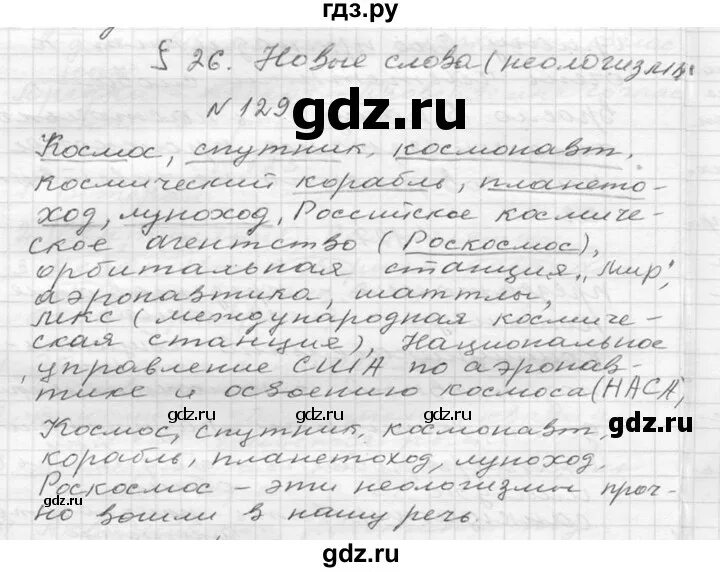 гдз.ру
§ 26. Новые слова (неологизмы)
N 129
gdz.ru
Космос, спутник, космонавт,
космический корабль, плането-
ход, луноход, Российское космиче-
ское агентство (Роскосмос),
орбитальная станция „Мир",
аэронавтика, шаттлы,
МКС (международная космиче-
ская станция), Национальное
управление США по аэронав-
тике и освоению космоса (НАСА)
gdz.ru gdz.ru
Космос, спутник, космонавт,
корабль, планетоход, луноход,
Роскосмос – эти неологизмы проч-
но вошли в нашу речь.
gdz.ru gdz.ru
gdz.ru